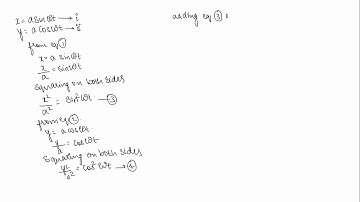 x = a sinωt → i
y = a cosωt → ii
from eq ①
x = a sinωt
x/a = sinωt
Squating on both sides
x²/a² = sin²ωt — ③
from eq ②
y = a cosωt
y/a = cosωt
Squating on both sides
y²/a² = cos²ωt → ④
adding eq ③ &